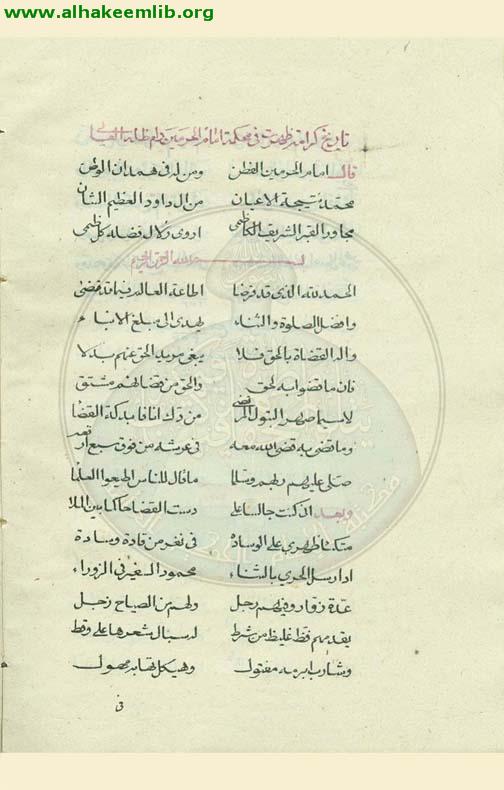 www.alhakeemlib.org
تاريخ كرامة ظهرت في محكمة امام الحرمين دام ظله العالي
قال امام الحرمين الفطن ومن له في همدان الوطن
محمد نتيجة الاعيان من ال داود العظيم الشان
مجاور القبر الشريف الكاظمي اروى زلال فضله كل ظمي
بسم الله الرحمن الرحيم
الحمد لله الذي قد فرضا اطاعة العالم فيما قد قضى
وافضل الصلوة والثناء يهدى الى مبلغ الانباء
واله القضاة بالحق فلا يبغي مريد الحق عنهم بدلا
فان ما قضوا به لحق والحق من قضائهم مشتق
لاسيما صهر البتول المرتضى من ذكت انافا به دكة القضا
وما قضى به قضى الله معه في عرشه من فوق سبع ارقعه
صلى عليهم ربهم وسلما ما قال للناس اطيعوا العلما
وبعد ان كنت جالسا على دست القضا حاكما بين الملا
متكئا ظهري على الوسادة في نفر من قادة وسادة
اذ ارسل الحري بالثناء محمود السفير في الزوراء
عدة زقاروفيهم رجل ولهم من الصياح زجل
يقدمهم فظ غليظ من شرط لم سبال شعرها على وقط
وشارب ابرمه مفتول وهيكل تهابه مهول
في